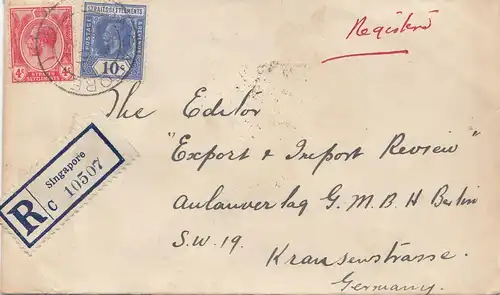 Registered
4c
STRAITS
SETTLEMENTS
STRAITS SETTLEMENTS
POSTAGE
10c
ORE
The Editor
"Export & Import Review"
Aulauverlag G. M. B. H Berlin
S.W. 19.
Krausenstrasse.
Germany.
R
Singapore
C 10507